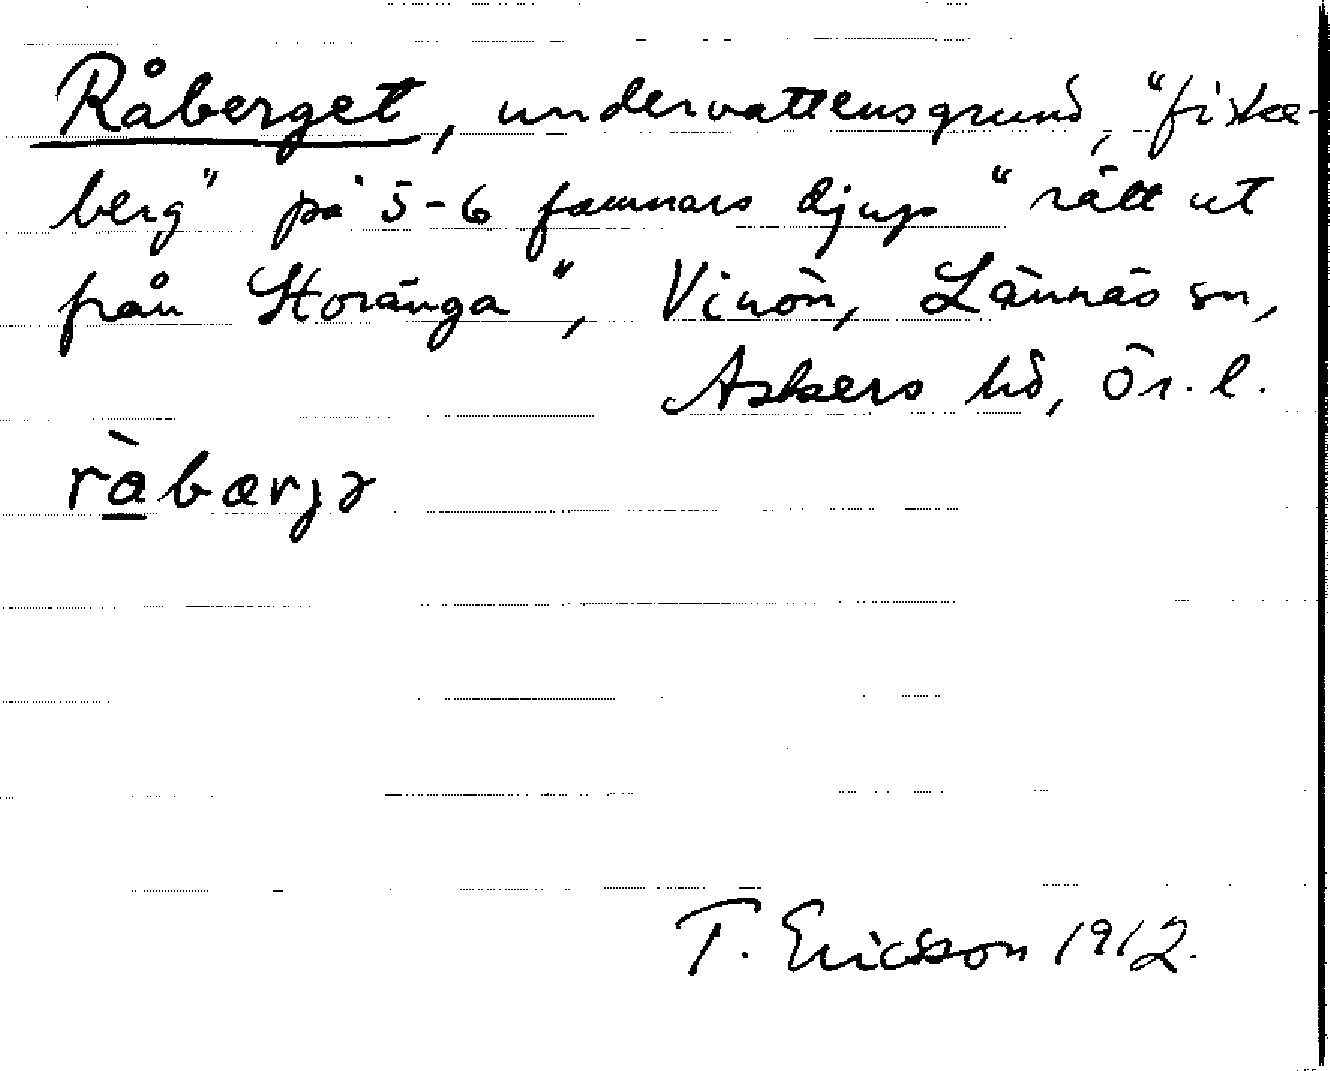 Råberget, undervattensgrund, "fiske-
berg" på 5-6 famnars djup "rätt ut
från Storänga", Vinön, Lännäs sn,
Askers hd, Ör. l.
ràbærjə
T. Ericsson 1912.